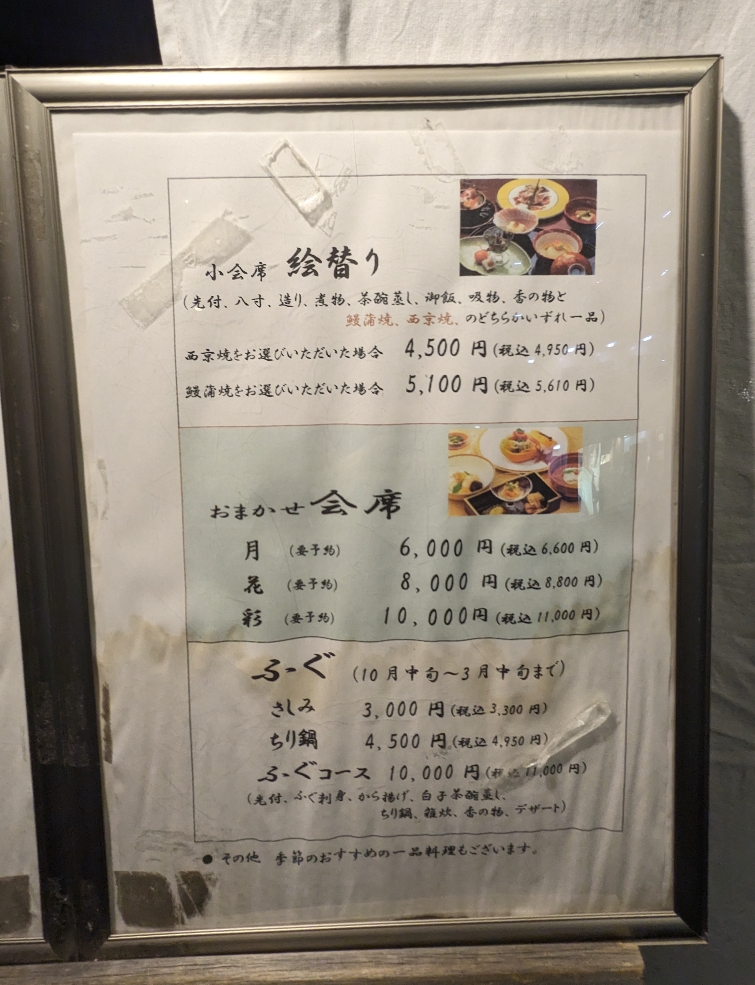 小会席 絵替り
(先付、八寸、造り、煮物、茶碗蒸し、御飯、吸物、香の物と
鰻蒲焼、西京焼、のどちらかいずれ一品)
西京焼をお選びいただいた場合 4,500 円(税込4,950 円)
鰻蒲焼をお選びいただいた場合 5,100 円(税込5,610 円)
おまかせ会席
月 (要予約) 6,000 円(税込6,600 円)
花 (要予約) 8,000 円(税込8,800 円)
彩 (要予約) 10,000円(税込11,000 円)
ふぐ (10月中旬～3月中旬まで)
さしみ 3,000 円(税込3,300 円)
ちり鍋 4,500 円(税込4,950 円)
ふぐコース 10,000 円(税込11,000 円)
(先付、ふぐ刺身、から揚げ、白子茶碗蒸し、
ちり鍋、雑炊、香の物、デザート)
● その他 季節のおすすめの一品料理もございます。